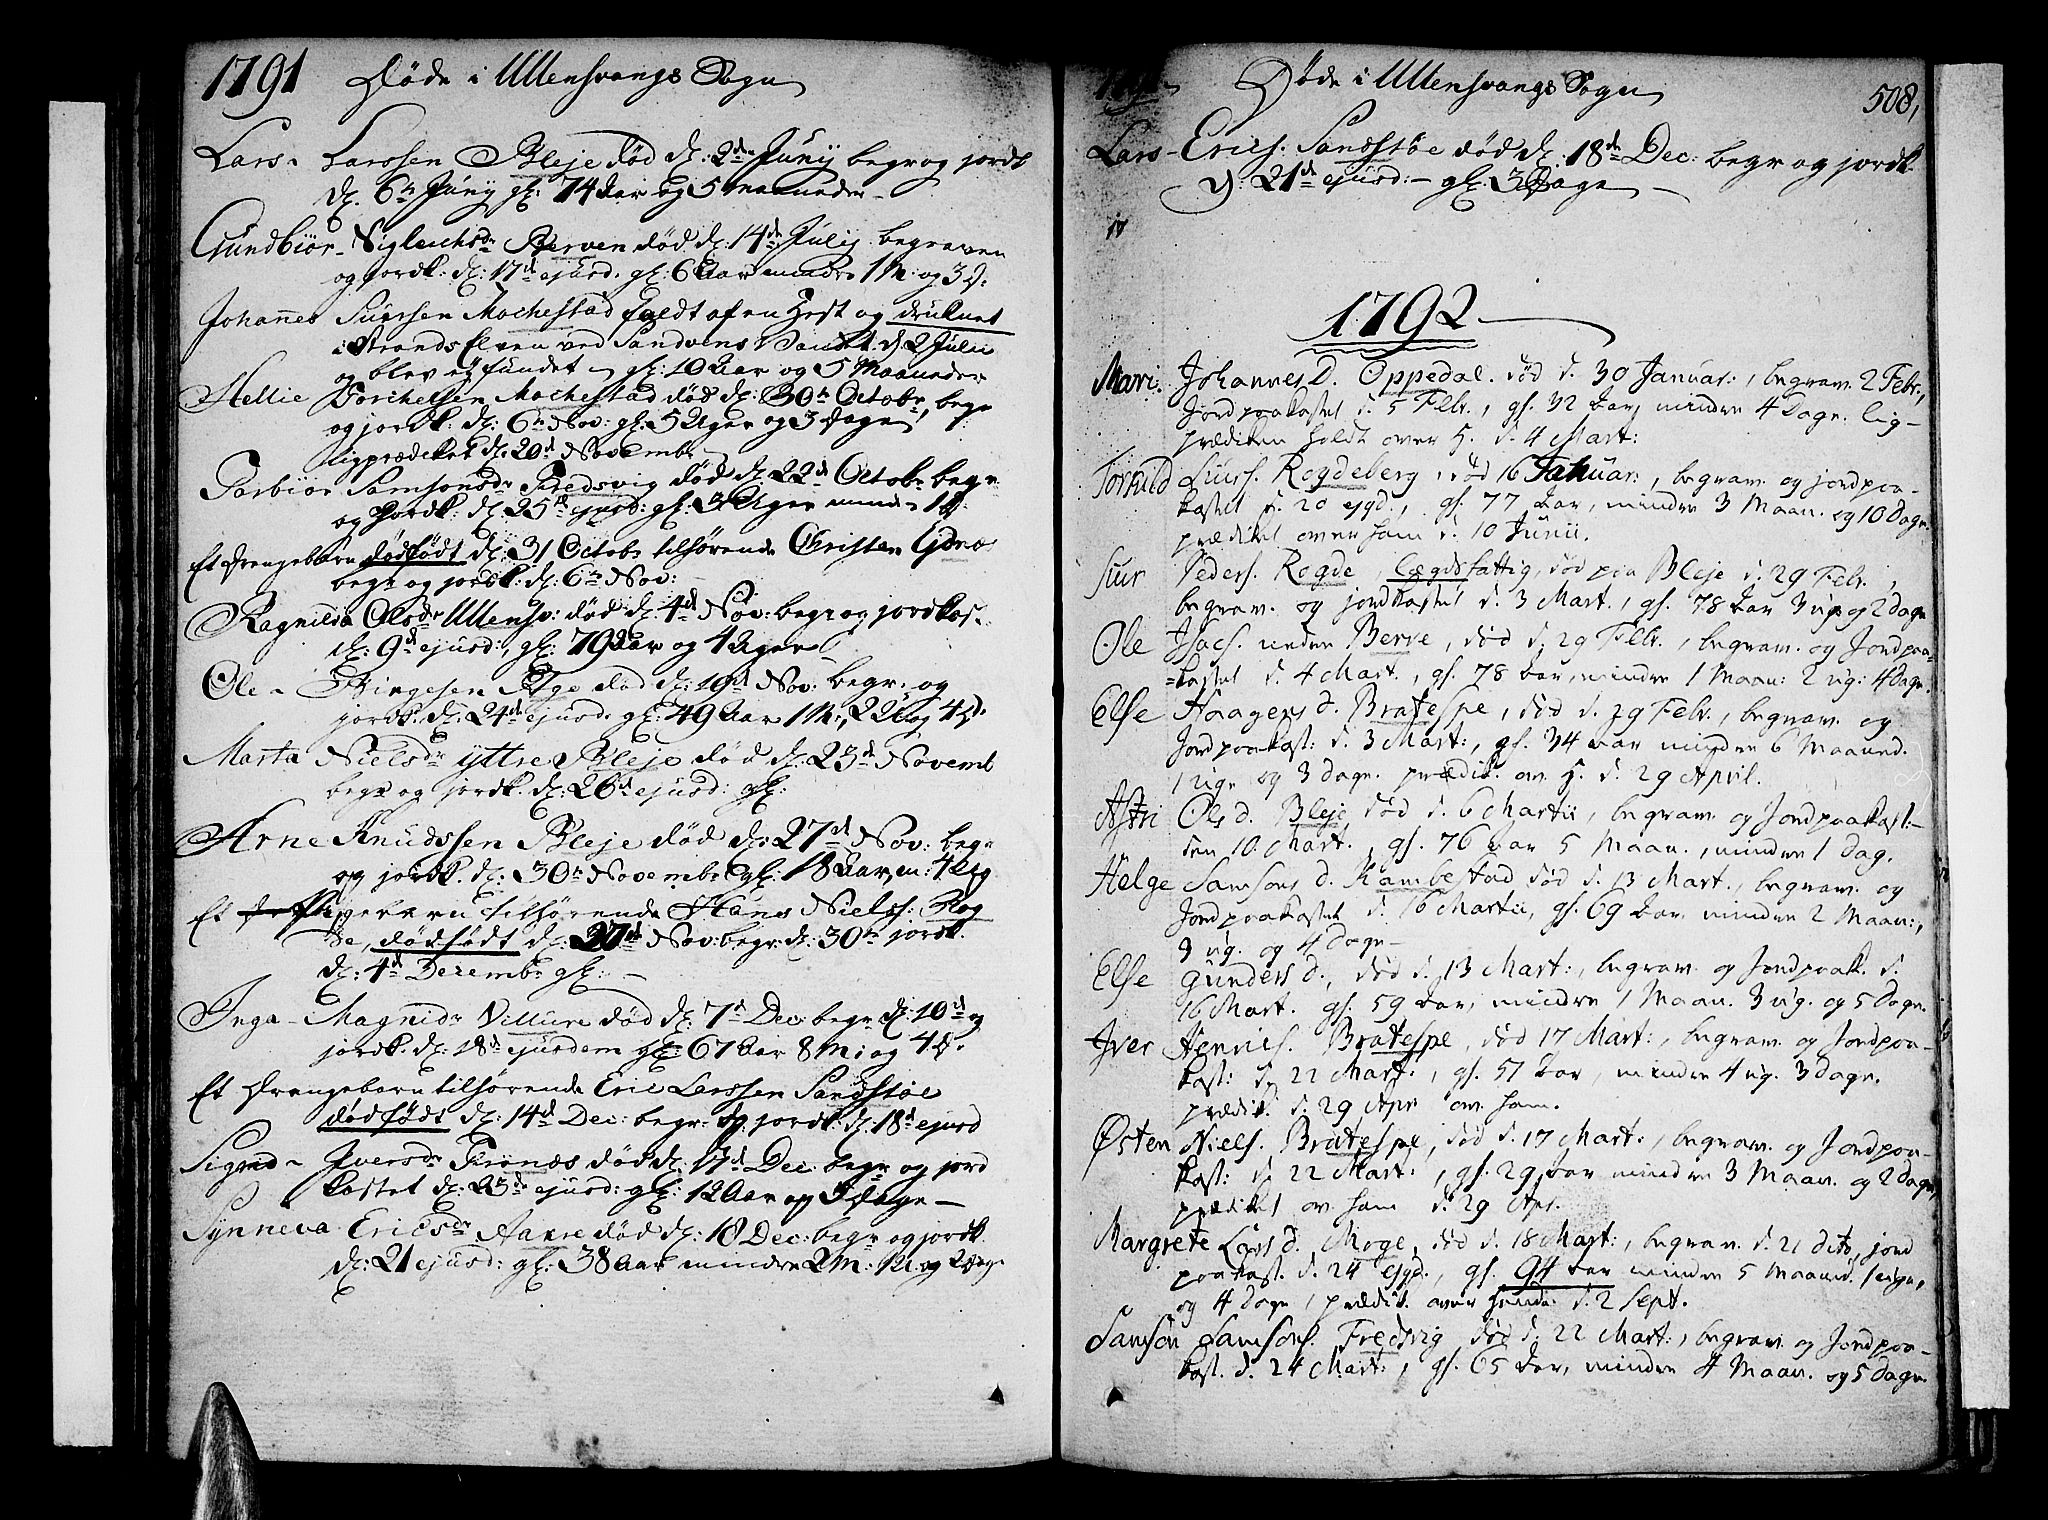 1791 Døde i Ullensvangs Sogn
Lars Larssen Bleje død d: 2den Juny begr og jordk
d. 6te Juny gl: 74 Aar og 5 maaneder
Gundbiør Sigleichsdr Berven død d: 14de July begraven
og jordk. d: 17d ejusd. gl: 6 Aar mindre 1 M. og 3 D:
Johannes Siurssen Mochestad faldt af en Hest og druknet
i Strands Elven ved Sandvens Vandet d 2 Julii
og blev ej fundet gl: 10 Aar og 5 Maaneder
Hellie Torchelsen Mochestad død d: 30te Octobr, begr
og jordk. d: 6te Nov: gl: 5 Uger og 3 Dage
ligprædeket d: 20d Novembr
Torbiør Samsonsdr Fredsvig død d: 22d Octobr begr
og Jordk: d: 25de ejusd: gl: 3 Uger mindr 1 D:
Et Drengebarn dødfødt d: 31 Octobr tilhørende Christen Ednæs
begr og jordk: d: 6te Nov:
Ragnilda Olsdr Ullensv: død d: 4d Nov: begr og jordkas
d: 9d ejusd: gl: 79 Aar og 4 Uger
Ole Aage død d: 19d Nov: begr: og
jordk. d: 24d ejusd. gl: 49 Aar 1 M:, 2 U og 4 D.
Marta Nielsdr yttre Bleje død d: 23d Novemb
begr og jordk. d: 26d ejusd: gl:
Arne Knudssen Bleje død d: 27d Nov: begr
og jordk. d: 30te Novembr gl: 18 Aar, m: 4 Ug
Et Pigebarn tilhørende Hans Nielss: Rog
de, dødfødt d: 27d Nov: begr: d: 30te jordk.
d: 4d Decembr gl:
Inga Magnidr Villure død d: 7d Dec: begr d: 10d og
jordk. d: 18d ejusdem gl: 67 Aar 8 M: og 4 D.
Et Drengebarn tilhørende Eric Larssen Sandstøe
dødfødt d: 14d Dec: begr: og jordk: d: 18d ejusd
Sigrid Iversdr Tronæs død d: 17d Dec: begr og jord
kastet d: 23de ejusd: gl: 12 Aar og Dage
Synneva Ericsdr Aakre død d: 18 Dec: begr og jordk.
d: 21 ejusd: gl: 38 Aar mindre 2 M: 1 U. og 2 Dage
1791 Døde i Ullensvangs Sogn
508,
Lars Erics: Sandstøe død d: 18de Dec: begr og jordk.
d: 21de ejusd: gl. 3 Dage
1792
Mari Johannes D. Oppedal. død d. 30 Januar:, begrav. 2 Febr.,
Jordpaakastet d. 5 Febr., gl. 32 Aar, mindre 4 Dage. lig-
prædiken holdt over H. d. 4 Mart:
Torkild Siurs. Rogdeberg, død 16 Januar:, begrav. og jordpaa-
kastet d. 20 ejsd., gl. 77 Aar, mindre 3 Maan. og 10 Dage.
prædiket over ham d. 10 Junii.
Siur Peders. Rogde, Lægdsfattig, død paa Bleje d. 29 Febr.,
begrav. og jordkastet d. 3 Mart., gl. 78 Aar 3 ug. og 2 Dage
Ole Isacs. nedre Berve, død d. 29 Febr., begrav. og Jordpaa-
kastet d. 4 Mart., gl. 78 Aar, mindre 1 Maan: 2 ug: 4 Dage.
Else Haagens d. Bratespe, død d. 29 Febr., begrav. og
Jordpaakast: d. 3 Mart:, gl. 34 Aar mindre 6 Maaned.
1 uge og 3 Dage. prædik. ov. H. d. 29 April.
Astri Ols d. Bleje død d. 6 Martii, begrav. og Jordpaakast:
den 10. Mart., gl. 76 Aar 5 Maan., mindre 1 Dag.
Helge Samsons d. Kambestad død d. 13 Mart., begrav. og
Jordpaakastet d. 16 Martii, gl. 69 Aar, mindre 2 Maan:,
3 ug. og 4 Dage
Else Gunders d., død d. 13 Mart:, begrav. og Jordpaak. d.
16 Mart. gl. 59 Aar, mindre 1 Maan. 3 ug. og 5 Dage.
Iver Henrics. Bratespe, død 17 Mart:, begrav. og Jordpaa-
kast: d. 22 Mart:, gl. 57 Aar, mindre 4 ug. 3 Dage.
prædik. d. 29 Apr. ov. ham.
Østen Niels. Bratespe, død d. 17 Mart:, begrav. og Jordpaa-
kast: d. 22 Mart:, gl. 29 Aar mindre 3 Maan. og 2 Dage,
prædiket ov. ham d. 29 Apr.
Margrete Lars d. Moge, død d. 18 Mart:, begrav. d. 21 dito, jord
paakast. d. 24 ejsd., gl. 94 Aar mindre 5 Maaned. 1 uge,
og 4 Dage, prædik. over hende d. 2 Sept.
Samson Samsons. Fredsvig død d. 22 Mart:, begrav. og Jordpaa-
kast. d. 24 Mart:, gl. 65 Aar, mindre 4 Maan. og 5 Dage.